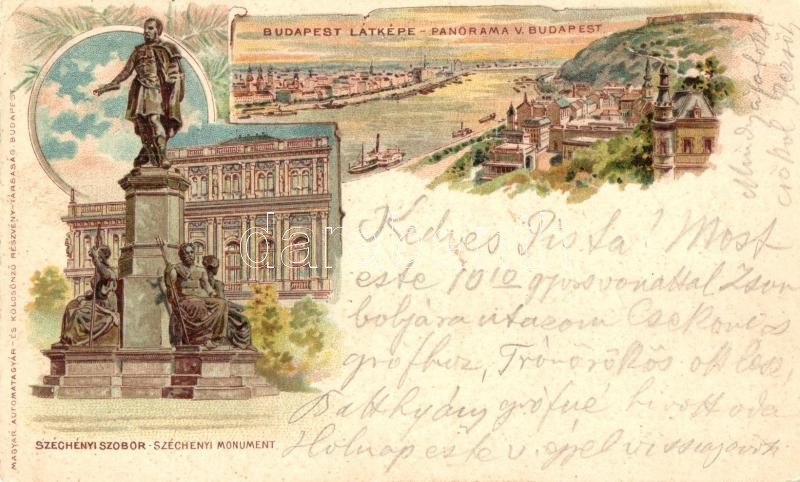 BUDAPEST LÁTKÉPE - PANORAMA V. BUDAPEST.
MAGYAR AUTOMATAGYÁR- ÉS KÖLCSÖNZŐ RÉSZVÉNY-TÁRSASÁG BUDAPEST.
SZÉCHÉNYI SZOBOR - SZÉCHENYI MONUMENT.
darabanth
Kedves Pista! Most
este 10 10 gyorsvonattal Zsom
boljára utazom Csekonics
grófhoz, Trónörökös ott lesz,
Batthyány grófné hivott oda
Holnap este v. éjjel
csókol